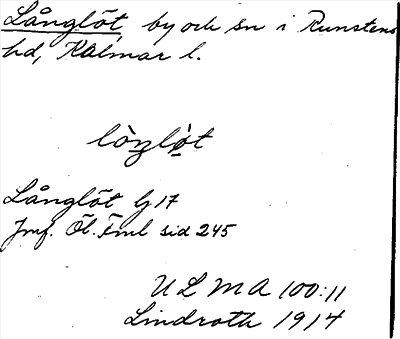 Långlöt, by och sn i Runstens
hd, Kalmar l.
lòŋlọ̀t
Långlöt G 17
Jmf. Öl. Fml sid 245
ULMA 100:11
Lindroth 1914